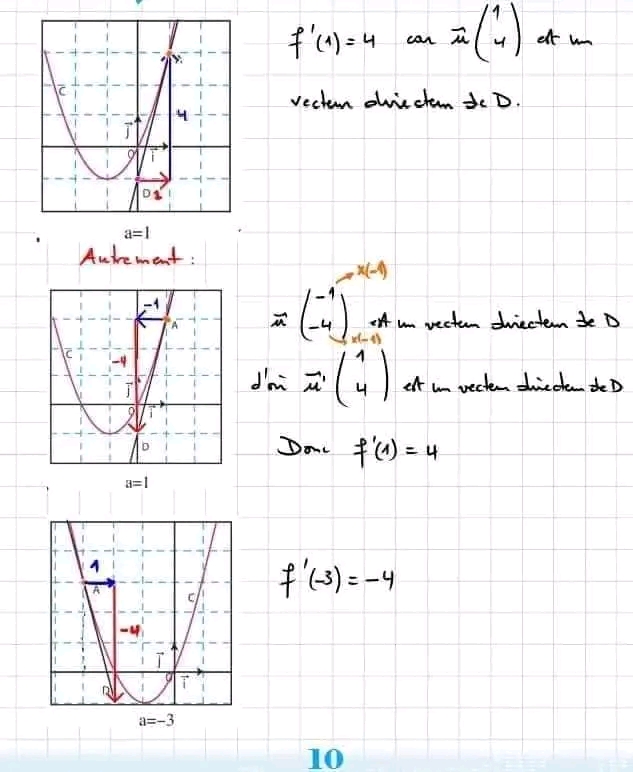 f'(1) = 4 car u⃗ (1 4) est un
vecteur directeur de D.
C
4
j⃗
O
i⃗
D
1
a=1
Autrement :
-1
A
C
-4
j⃗
O
i⃗
D
a=1
x(-1)
u⃗ (-1 -4) est un vecteur directeur de D
x(-1)
d'où u⃗' (1 4) est un vecteur directeur de D
Donc f'(1) = 4
1
A
C
-4
j⃗
O
i⃗
D
a=-3
f'(-3) = -4
10